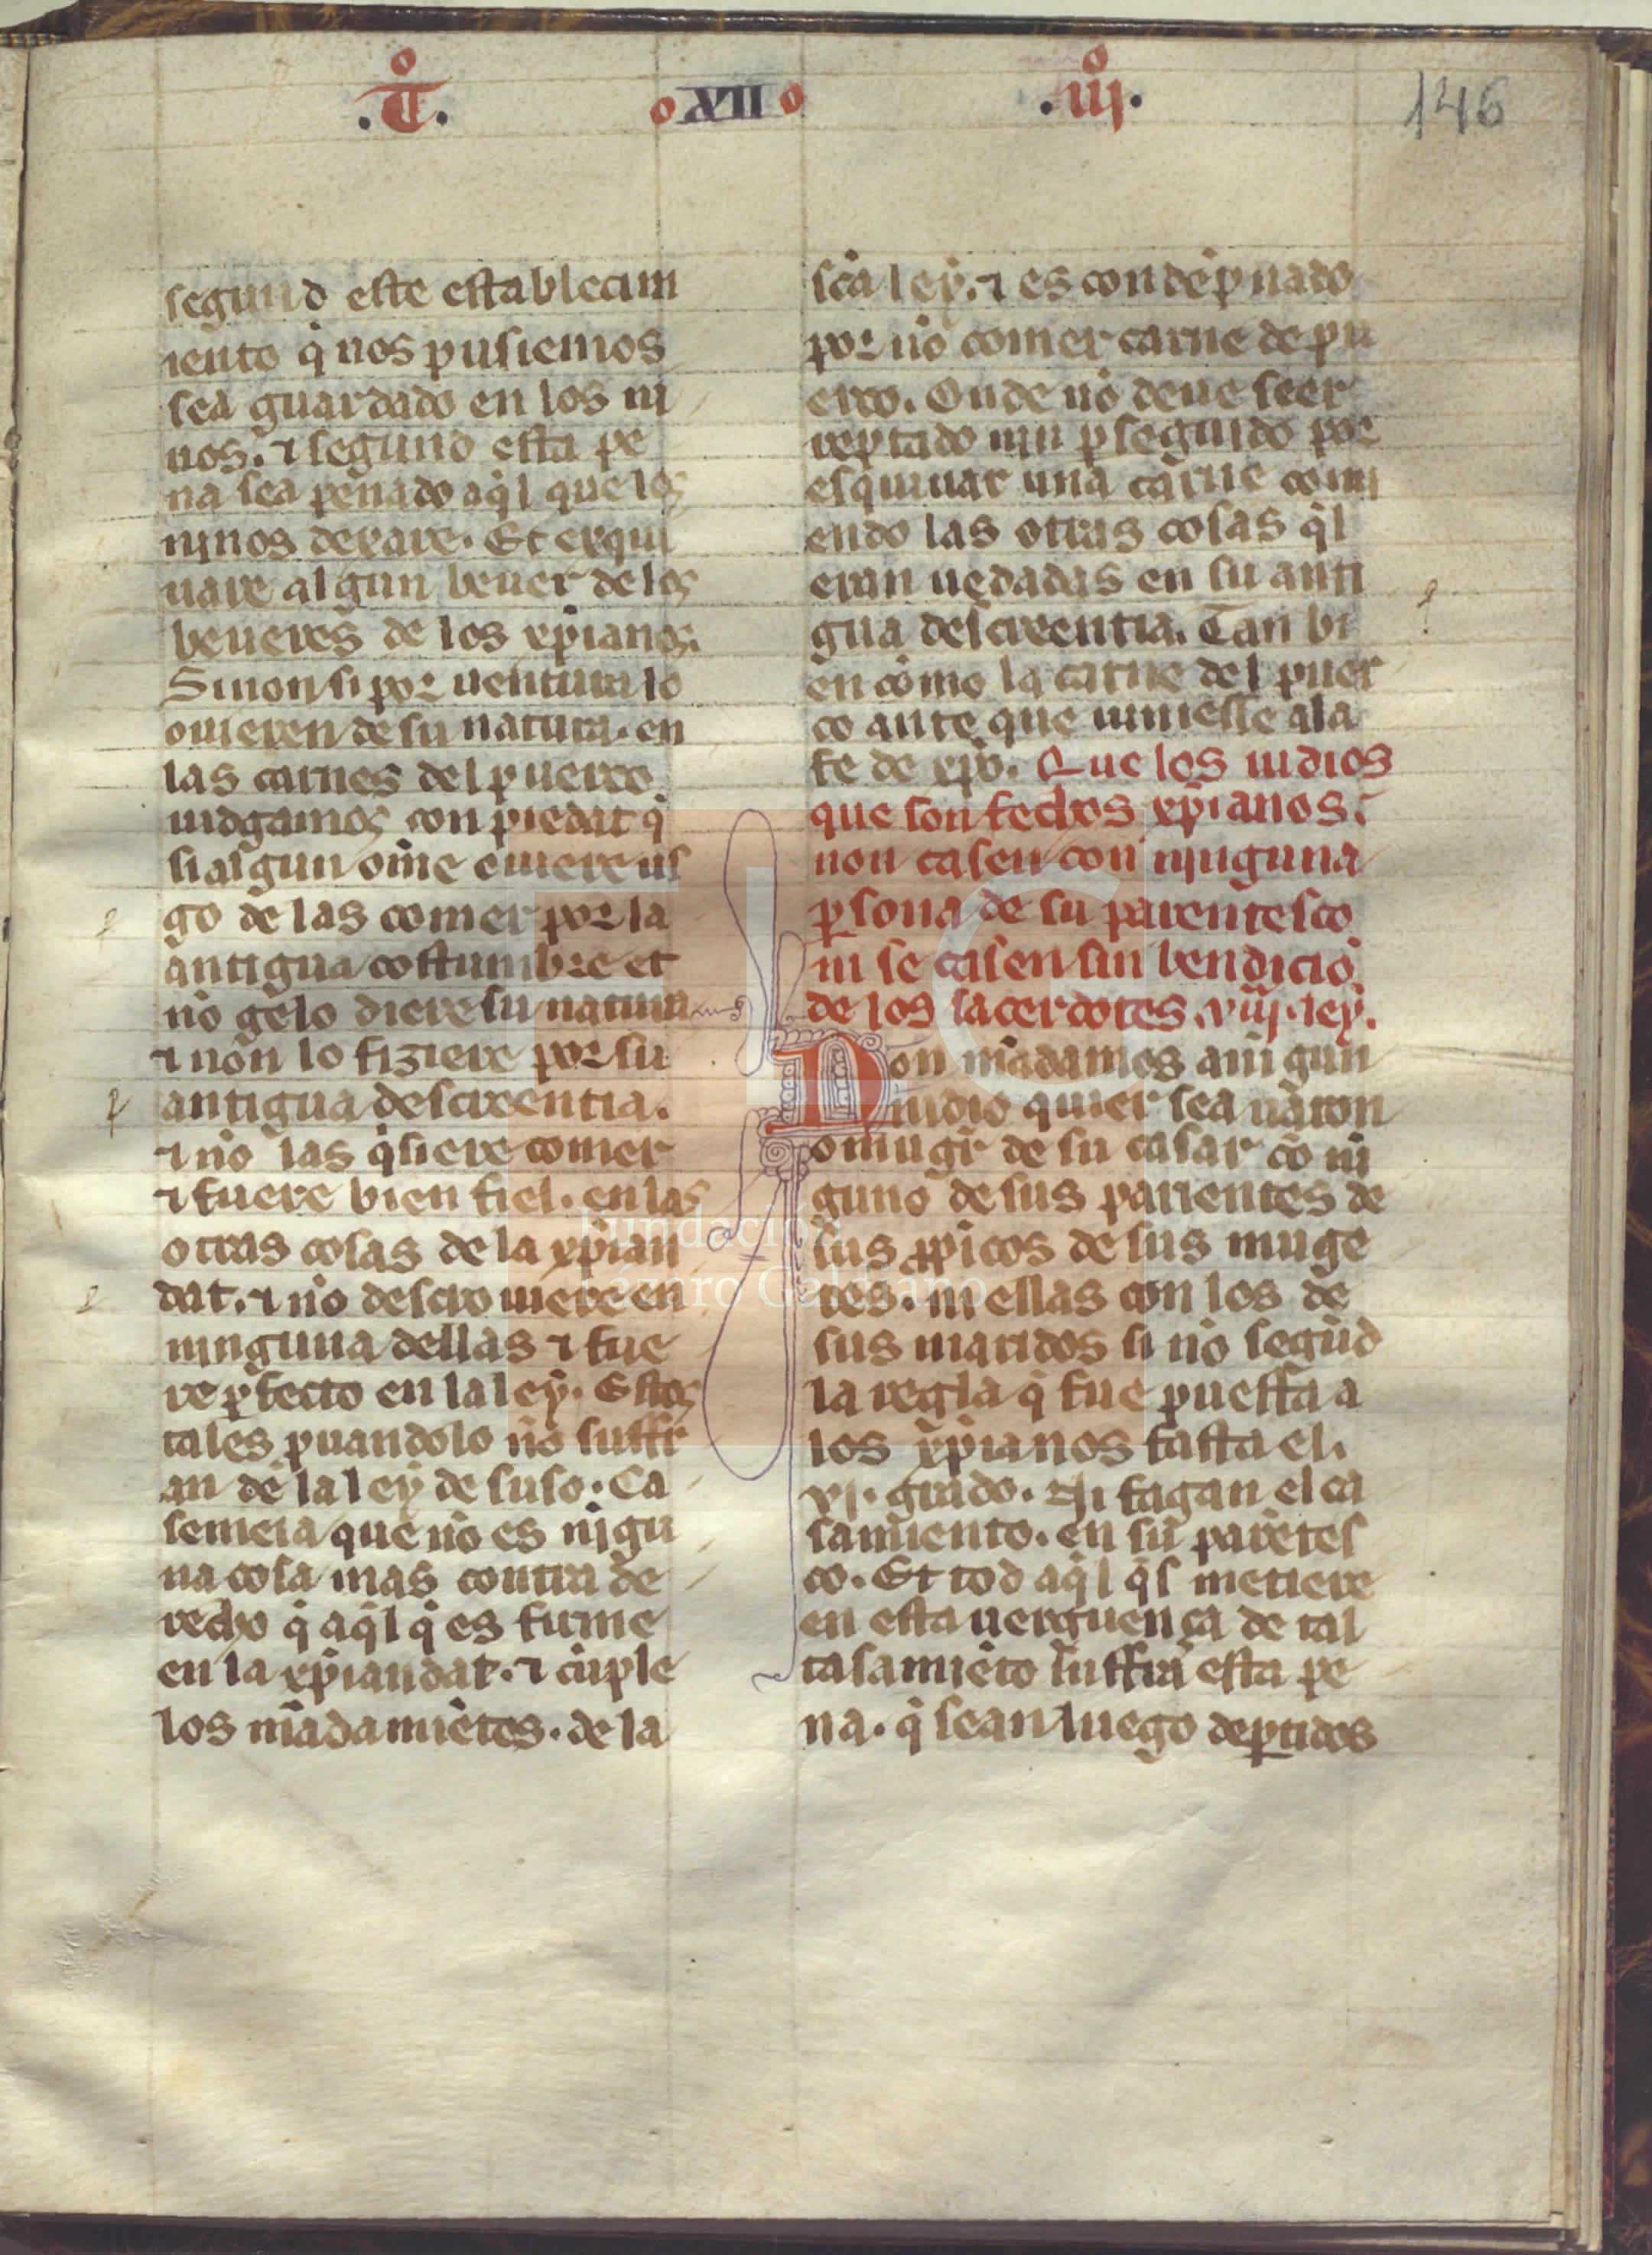 .T.
XII
.iij.
146
segund este establecim
iento q̇ nos pusiemos
sea guardado en los ni
nos. ⁊ segund esta pe
na sea penado aq̇l que los
ninos dexare. Et exqui
uare algun beuer de los
beueres de los xp̄ianos.
Sinon si por uentura lo
ouieren de su natura. en
las carnes del puerco
iudgamos con piedat q̇
si algun om̄e ouiere us
go de las comer por la
antigua costumbre et
nō gelo diere su natura
⁊ non lo fiziere por su
antigua descreentia.
⁊ nō las q̇siere comer
⁊ fuere bien fiel. en las
otras cosas de la xp̄ian
dat. ⁊ nō descrouiere en
ninguna dellas ⁊ fue
re ꝑfecto en la ley. Estos
tales puandolo nō suffr
an de la ley de suso. Ca
semeia que nō es nigu
na cosa mas contra de
recho q̇ aq̇l q̇ es firme
en la xp̄iandat. ⁊ cūple
los mādamiētos. de la
sc̄a ley. ⁊ es condēpnado
por nō comer carne de pu
erco. Onde nō deue seer
reptado nin ꝑseguido por
esquiuar una carne comi
endo las otras cosas q̇l
eran uedadas en su anti
gua descreentia. Tan bi
en cōmo la carne del puer
co ante que uiniesse ala
fe de xp̄o. Que los iudios
que son fechos xp̄ianos.
non casen con ninguna
ꝑsona de su parentesco
ni se casen sin bendiciō
de los sacerdotes. viij. ley.
Non mādamos a nīgun
iudio quier sea uaron
o mugr̄ de su casar cō ni
guno de sus parientes de
sus ꝓpicos de sus muge
res. ni ellas con los de
sus maridos si nō segūd
la regla q̇ fue puesta a
los xp̄ianos fasta el.
vj. grado. Ni fagan el ca
samiento. en su parētes
co. Et tod aq̇l q̇s metiere
en esta uerguença de tal
casamiēto suffra esta pe
na. q̇ sean luego deꝑtidos
Fundación
Lázaro Galdiano